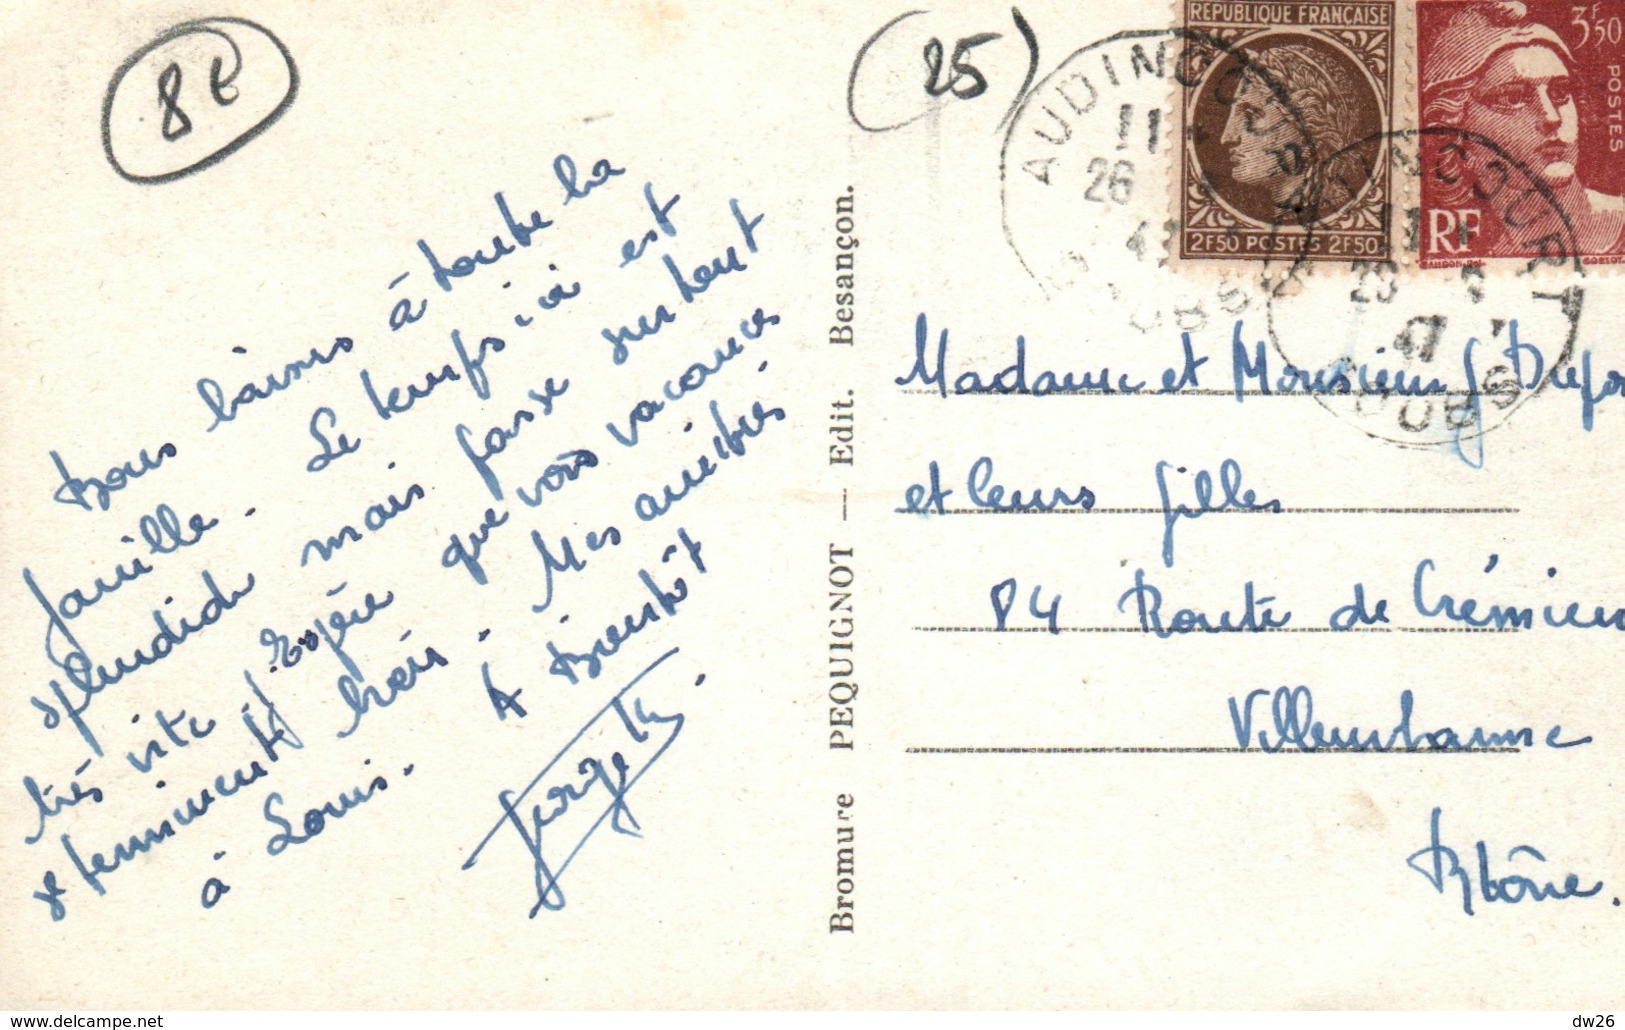 8e
25
Bons baisers à toute la
famille. Le temps ici est
splendide mais passe surtout
très vite. J'espère que vos vacances
se terminent bien. Mes amitiés
à Louis. A Bientôt
Georgette
Bromure PEQUIGNOT — Edit. Besançon.
REPUBLIQUE FRANÇAISE
2F50 POSTES 2F50
3F50
POSTES
RF
GANDON
AUDINCOURT
11
26
47
DOUBS
AUDINCOURT
11
26
47
DOUBS
Madame et Monsieur J Dufo
et leurs filles
84 Route de Crémieu
Villeurbanne
Rhône.
www.delcampe.net
dw26